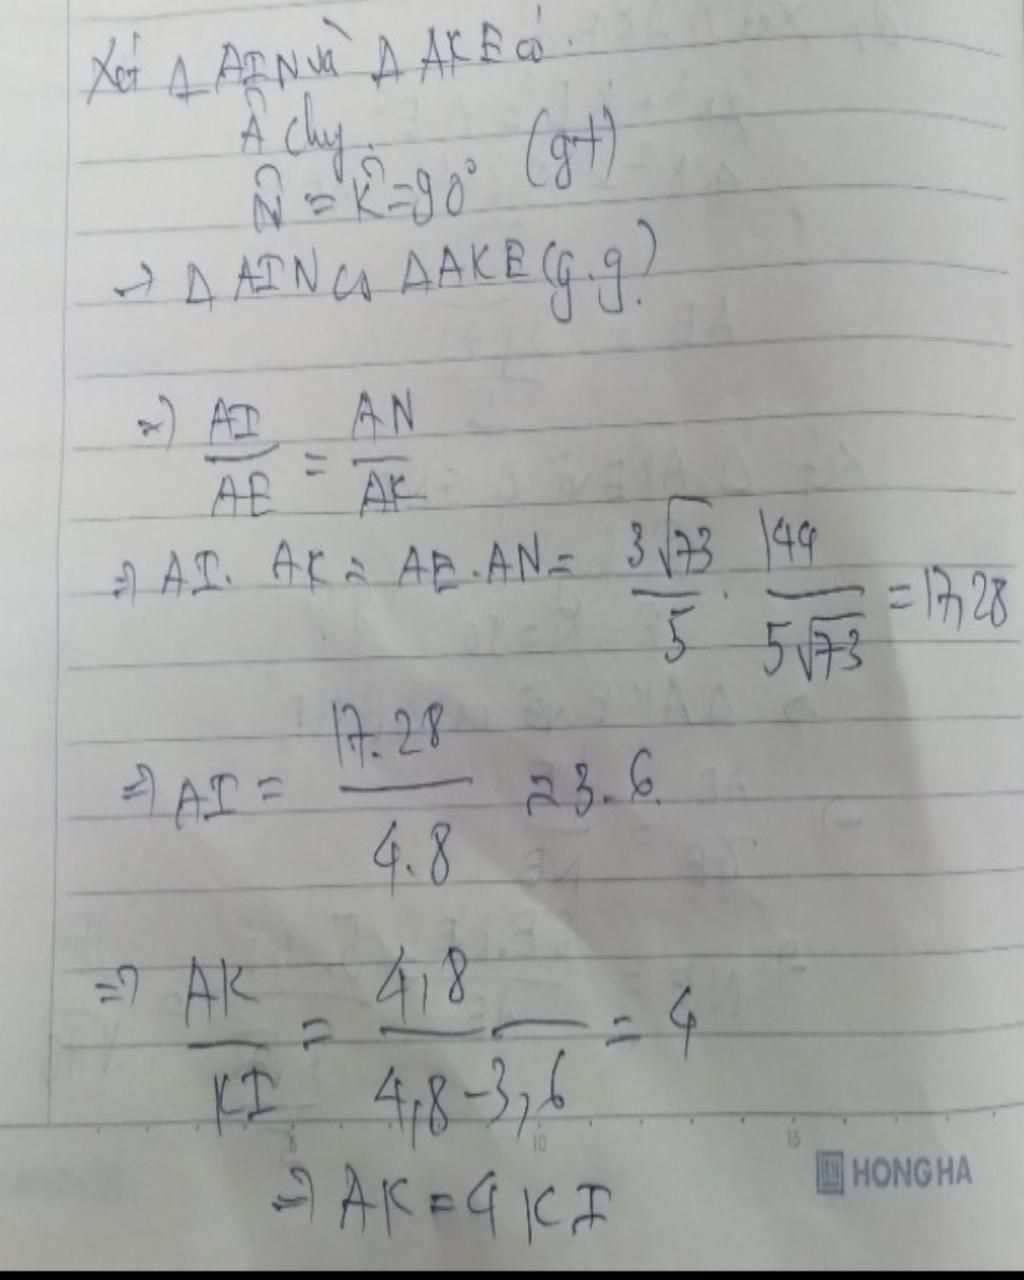 Xét Δ AIN và Δ AKE có:
Â chung.
N̂ = K̂ = 90° (gt)
→ Δ AIN ∽ Δ AKE (g.g)
=> AI/AE = AN/AK
=> AI. AK = AE.AN = 3√73/5 . 144/5√73 = 17,28
=> AI = 17.28/4.8 = 3.6.
=> AK/KI = 4,8/4,8-3,6 = 4
=> AK = 4 KI
5 10 15
HONG HA